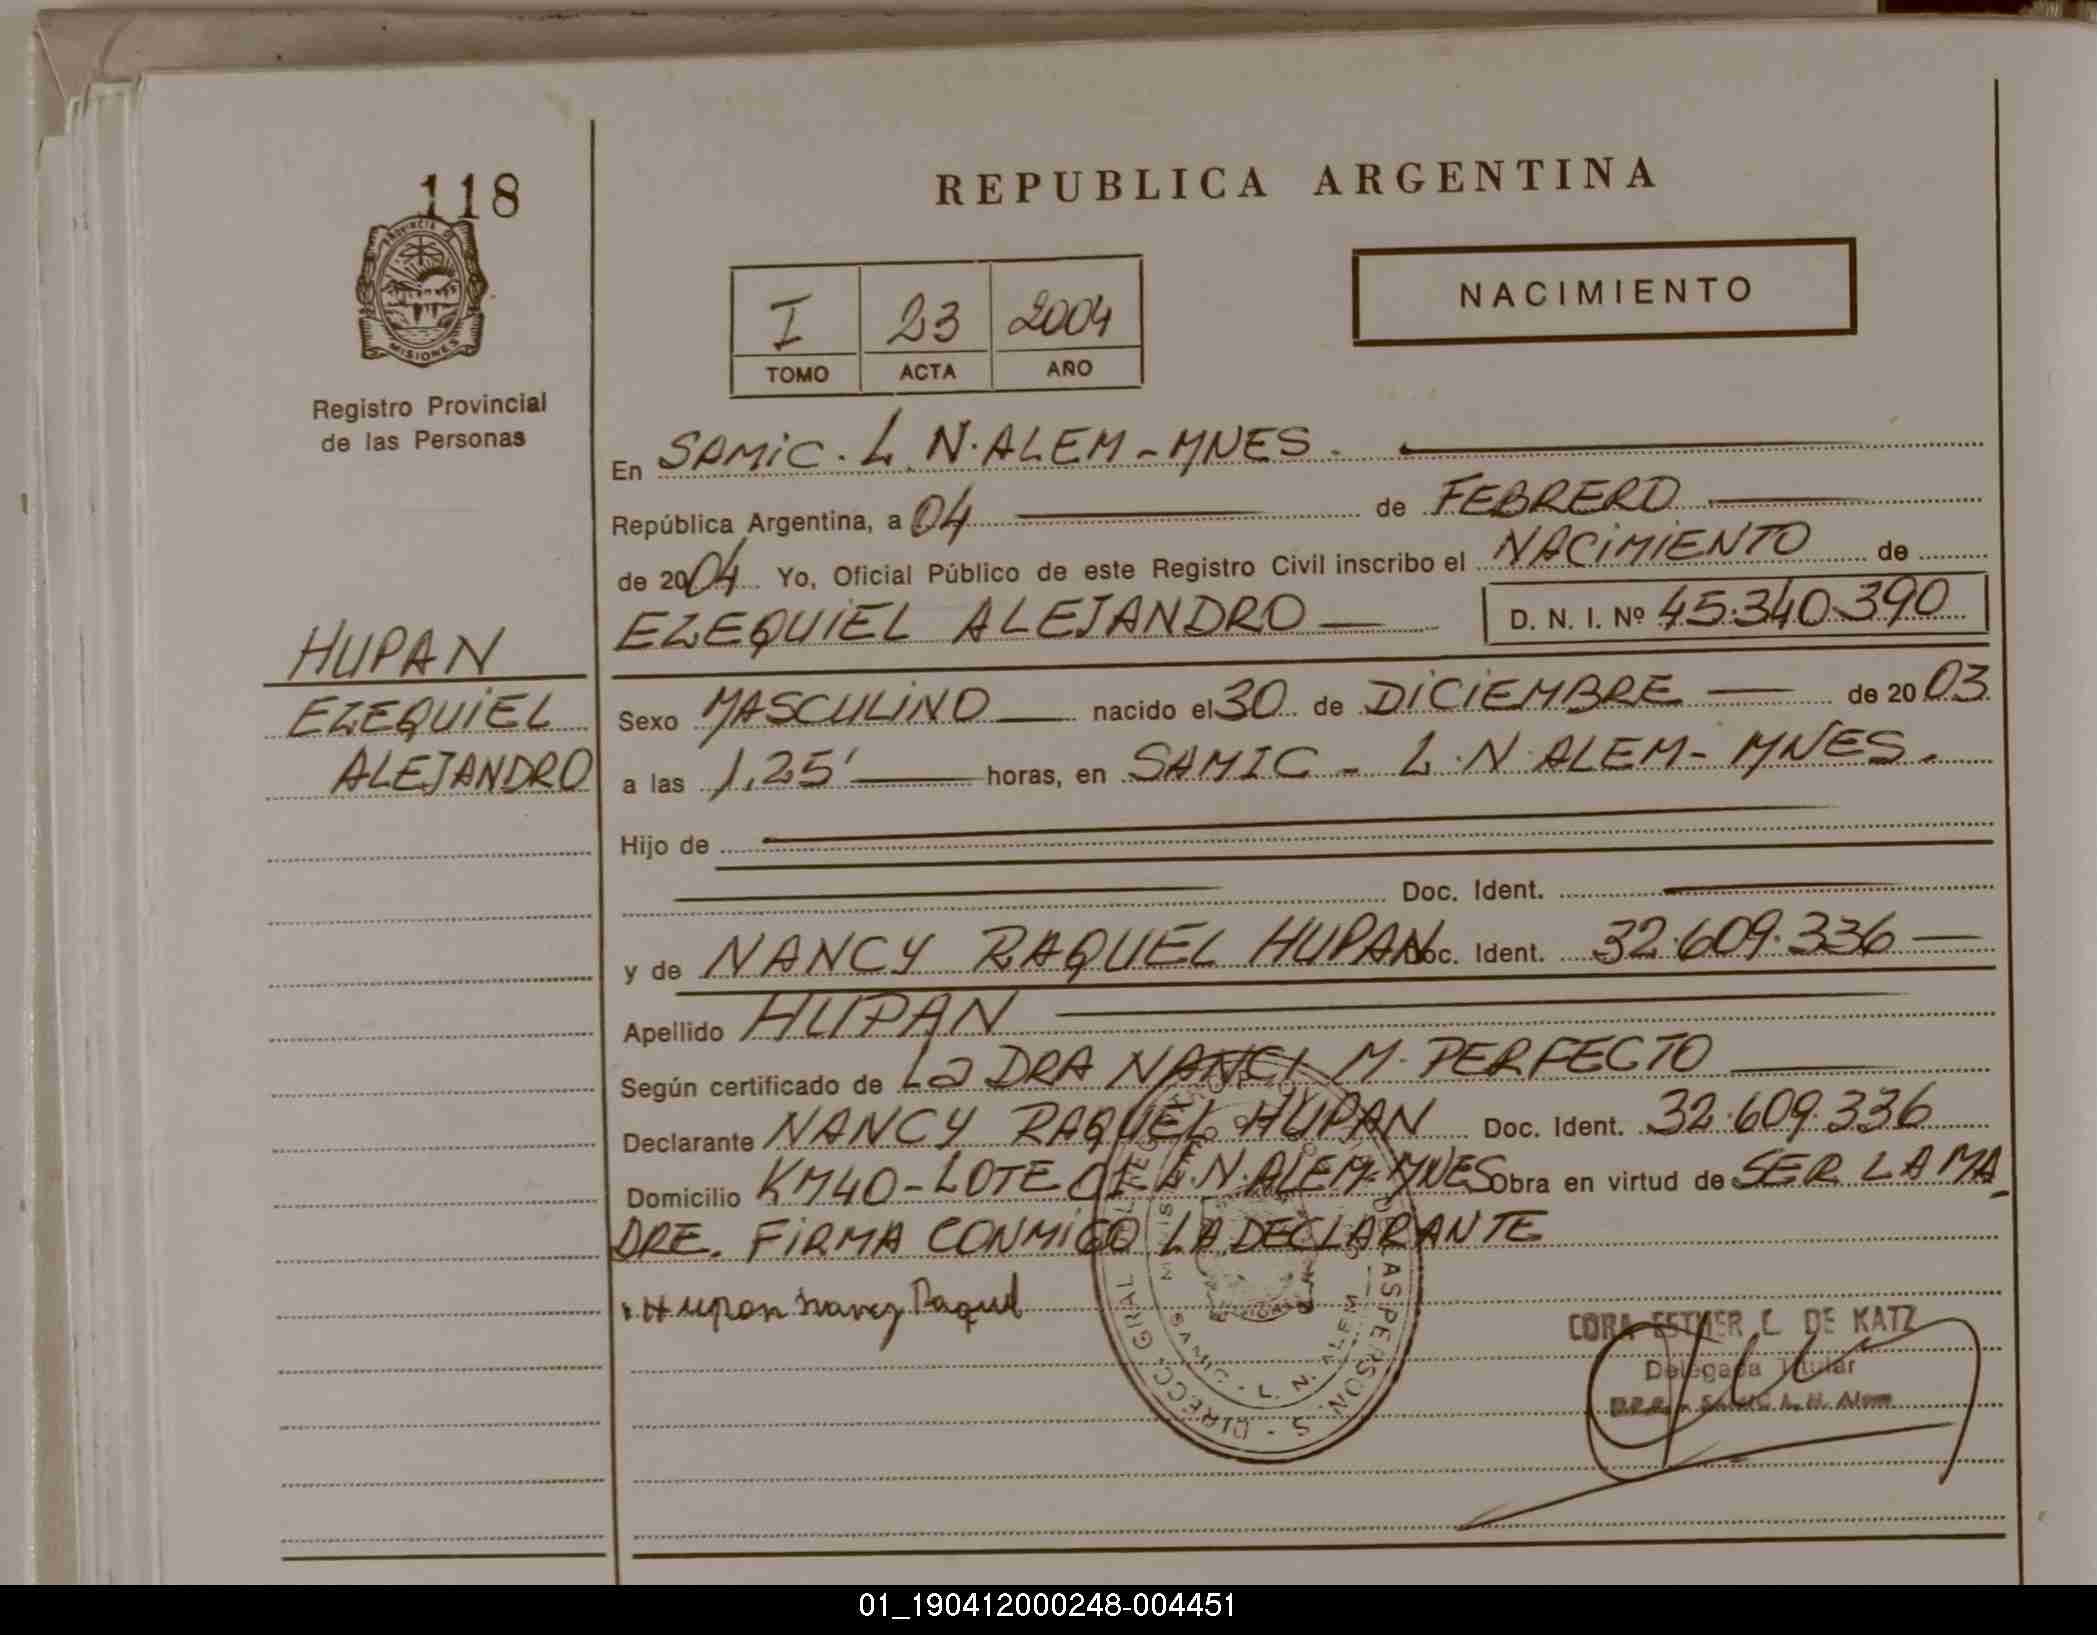 118
PROVINCIA DE
MISIONES
Registro Provincial
de las Personas
REPUBLICA ARGENTINA
I 23 2004
TOMO ACTA AÑO
NACIMIENTO
En SAMIC. L. N. ALEM - MNES.
República Argentina, a 04 de FEBRERO
de 2004 Yo, Oficial Público de este Registro Civil inscribo el NACIMIENTO de
EZEQUIEL ALEJANDRO D. N. I. Nº 45.340.390
HUPAN
EZEQUIEL
ALEJANDRO
Sexo MASCULINO nacido el 30 de DICIEMBRE de 2003
a las 1,25' horas, en SAMIC - L. N. ALEM - MNES.
Hijo de
Doc. Ident.
y de NANCY RAQUEL HUPAN Doc. Ident. 32.609.336
Apellido HUPAN
Según certificado de La DRA NANCI M. PERFECTO
Declarante NANCY RAQUEL HUPAN Doc. Ident. 32.609.336
Domicilio KM40 - LOTE L.N. ALEM - MNES Obra en virtud de SER LA MA-
DRE. FIRMA CONMIGO LA DECLARANTE
Hupan Nancy Raquel
DIRECC. GRAL. LAS PERSON S
SAMIC - L. N. ALEM
CORA ESTHER L. DE KATZ
Delegada Titular
L. N. Alem
01_190412000248-004451